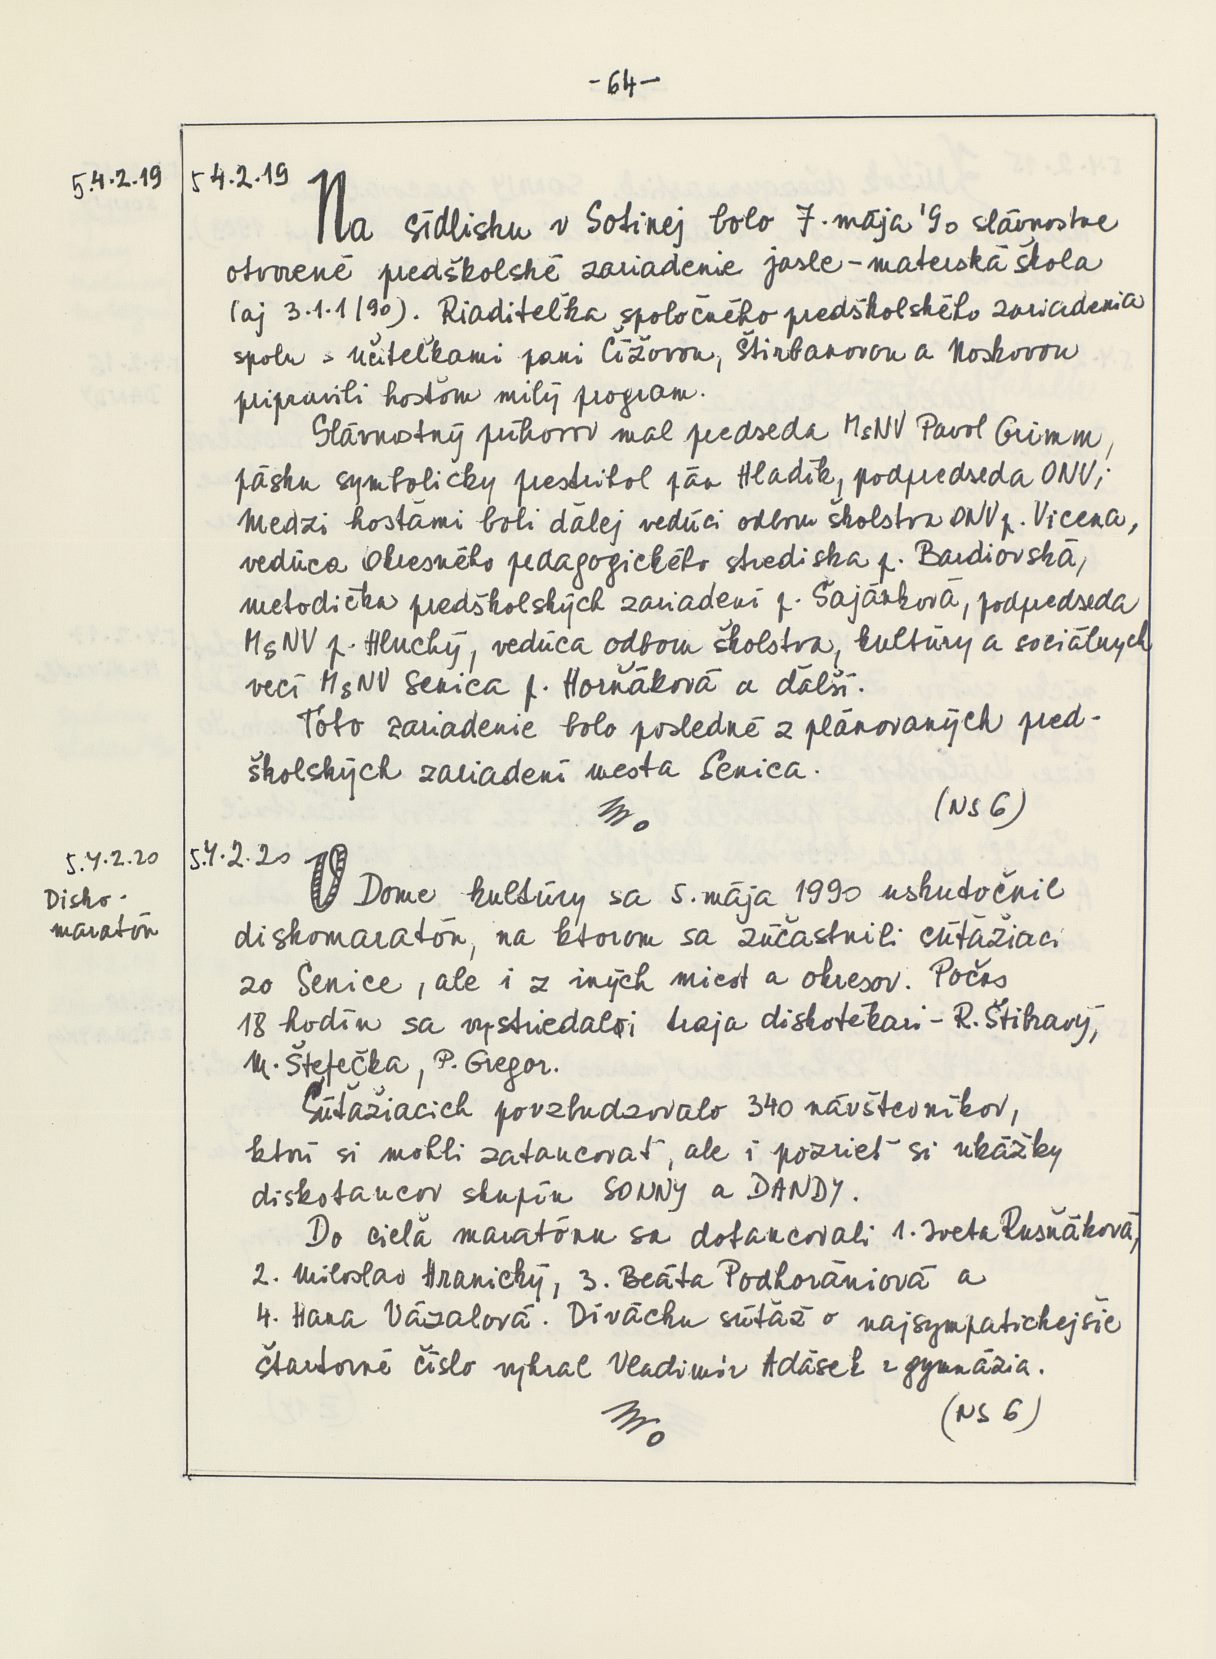 -64-
5.4.2.19
5.4.2.19 Na sídlisku v Sotinej bolo 7. mája '90 slávnostne
otvorené predškolské zariadenie jasle - materská škola
(aj 3.1.1/90). Riaditeľka spoločného predškolského zariadenia
spolu s učiteľkami pani Čížovou, Štirbanovou a Noskovou
pripravili hosťom milý program.
Slávnostný príhovor mal predseda MsNV Pavol Grimm,
pásku symbolicky prestrihol pán Hladík, podpredseda ONV;
Medzi hosťami boli ďalej vedúci odboru školstva ONV p. Vicena,
vedúca Okresného pedagogického strediska p. Bardiovská,
metodička predškolských zariadení p. Šajánková, podpredseda
MsNV p. Hluchý, vedúca odboru školstva, kultúry a sociálnych
vecí MsNV Senica p. Horňáková a ďalší.
Toto zariadenie bolo posledné z plánovaných pred-
školských zariadení mesta Senica.
(NS 6)
5.4.2.20
Disko-
maratón
5.4.2.20
V Dome kultúry sa 5. mája 1990 uskutočnil
diskomaratón, na ktorom sa zúčastnili súťažiaci
zo Senice, ale i z iných miest a okresov. Počas
18 hodín sa vystriedali traja diskotékari - R. Štítravý,
M. Štefečka, P. Gregor.
Súťažiacich povzbudzovalo 340 návštevníkov,
ktorí si mohli zatancovať, ale i pozrieť si ukážky
diskotancov skupín SONNY a DANDY.
Do cieľa maratónu sa dotancovali 1. Iveta Rusňáková,
2. Miloslav Hranický, 3. Beáta Podhorániová a
4. Hana Vázalová. Divácku súťaž o najsympatickejšie
štartovné číslo vyhral Vladimír Adásek z gymnázia.
(NS 6)